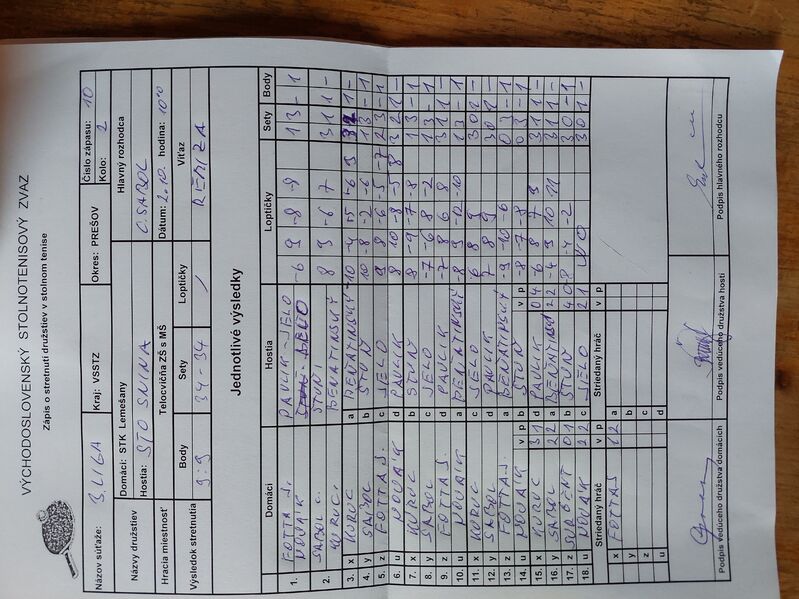 VÝCHODOSLOVENSKÝ STOLNOTENISOVÝ ZVAZ
Zápis o stretnutí družstiev v stolnom tenise
Názov súťaže: 3. LIGA Kraj: VSSTZ Okres: PREŠOV Číslo zápasu: 10
Kolo: 2
Názvy družstiev Domáci: STK Lemešany Hlavný rozhodca
Hostia: STO SNINA C. SABOL
Hracia miestnosť Telocvičňa ZŠ s MŠ Dátum: 2.10. hodina: 10 00
Výsledok stretnutia Body Sety Loptičky Víťaz
9:9 34-34 / REMÍZA
Jednotlivé výsledky
Domáci Hostia Loptičky Sety Body
1. FOTTA S. PAVLIK - JELO -6 9 -8 -9 1 3 - 1
NOVAIK
2. SABOL C. STUNI 8 9 -6 7 3 1 1 -
KURUC BENATINSKÝ
3. x KURUC a BENATINSKÝ
4. y SABOL b STUNÝ 10 -8 -2 -6 1 3 - 1
5. z FOTTA S. c JELO 9 8 -6 -5 -7 2 3 - 1
6. u NOVAIK d PAVLIK 8 10 -8 -5 8 3 2 1 -
7. x KURUC b STUNÝ 8 -9 -7 -8 1 3 - 1
8. y SABOL c JELO -7 -6 8 -2 1 3 - 1
9. z FOTTA S. d PAVLIK -7 8 6 8 3 1 1 -
10. u NOVAIK a BENATINSKÝ -8 9 -12 -10 1 3 - 1
11. x KURUC c JELO 6 8 9 3 0 1 -
12. y SABOL d PAVLIK 7 8 9 3 0 1 -
13. z FOTTA S. a BENATINSKÝ -9 -10 -6 0 3 - 1
14. u NOVAIK v p b STUNÝ v p -8 -7 -8 0 3 - 1
15. x KURUC 3 1 d PAVLIK 0 4 -6 8 7 9 3 1 1 -
16. y SABOL 2 2 a BENATINSKÝ 2 2 -4 9 10 11 3 1 1 -
17. z 0 1 b STUNÝ 4 0 -8 -4 -2
18. u NOVAIK 2 2 c JELO 2 1 WO 3 0 1 -
Striedaný hráč v p Striedaný hráč v p
x FOTTA S 1 2 a
y b
z c
u d
Podpis vedúceho družstva domácich Podpis vedúceho družstva hostí Podpis hlavného rozhodcu